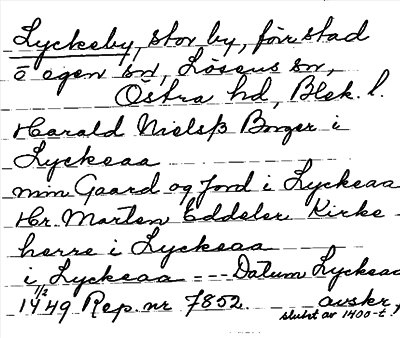 Lyckeby, stor by, förr stad
o egen sn, Lösens sn,
Östra hd, Blek. l.
Harald Nielsß Borger i
Lyckeaa
min Gaard og Jord i Lyckeaa
Hr. Morten Eddeler Kirke-
herre i Lyckeaa
i Lyckeaa --- Datum Lyckeaa
11/2 1449 Rep. nr 7852. avskr.
slutet av 1400-t.